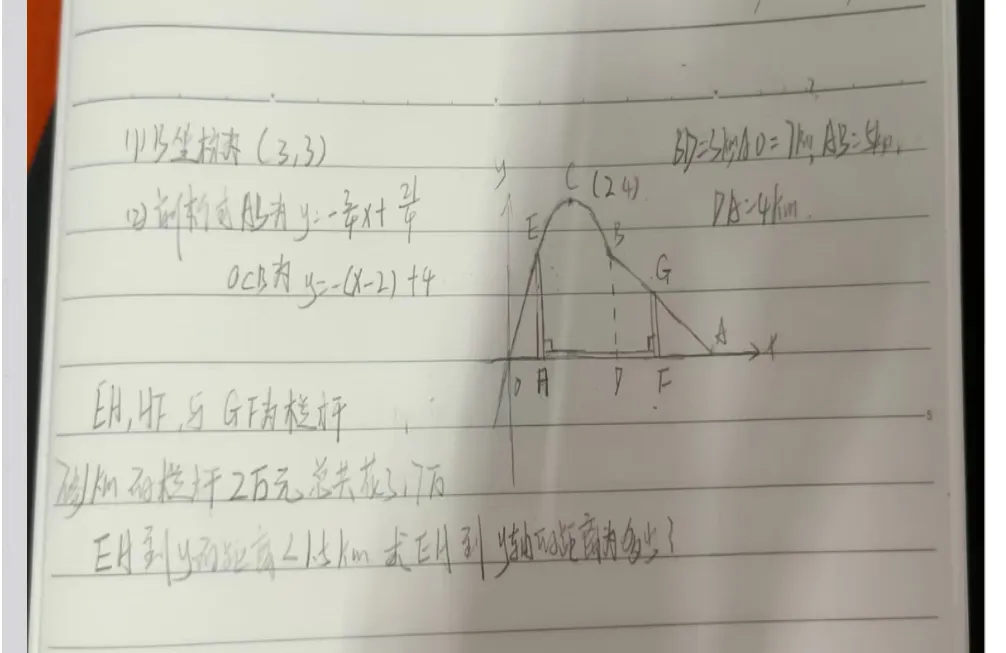 (1) B坐标为 (3,3)
(2) 解析式AB为 y=-3/4x+21/4
OCB为 y=-(x-2)+4
EH, HF, 与 GF为栏杆
每km的栏杆2万元,总共花了,7万
EH到y的距离<1.5km 求EH到y轴的距离为多少?
BD=3km AO=7km, AB=5km,
DA=4km.
y
C (2 4)
E
B
G
A
x
O
H
D
F
5